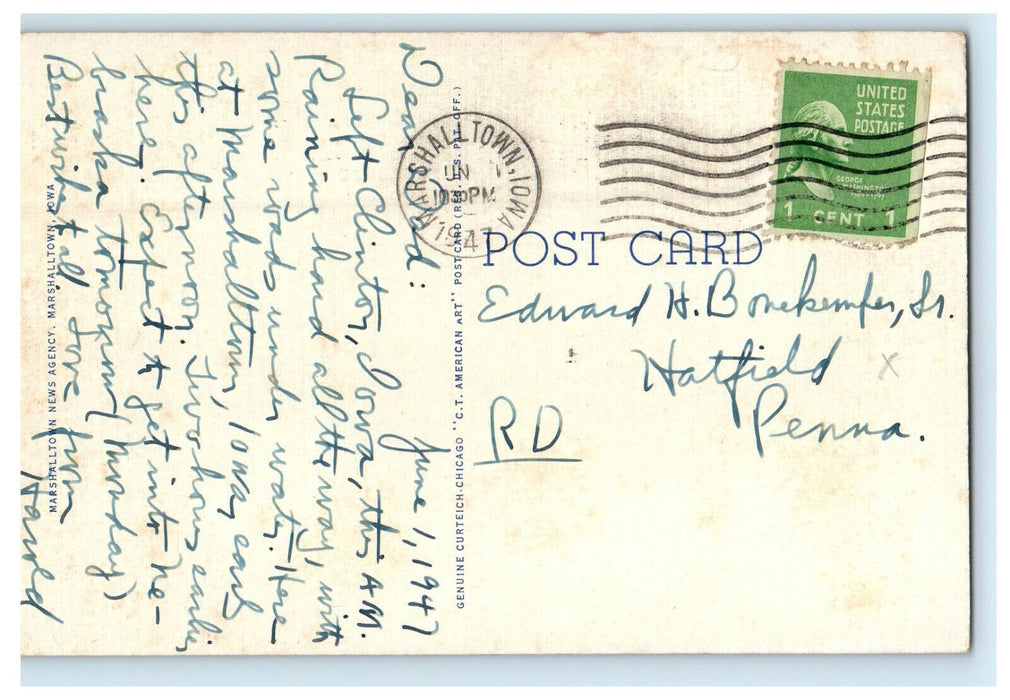 June 1, 1947
Dear Dad:
Left Clinton, Iowa, this AM.
Raining hard all the way, with
some roads under water. Here
at Marshalltown, Iowa, early
this afternoon. Two hours earlier
here. Expect to get into Ne-
braska tomorrow (Monday)
Best wishes to all. Love from
Harold
MARSHALLTOWN NEWS AGENCY, MARSHALLTOWN, IOWA
GENUINE CURTEICH-CHICAGO "C.T. AMERICAN ART" POST CARD (REG. U.S. PAT. OFF.)
MARSHALLTOWN, IOWA
JUN 1
PM
1947
UNITED
STATES
POSTAGE
GEORGE
WASHINGTON
1 CENT 1
POST CARD
Edward H. Bonekemper, Sr.
Hatfield
Penna.
RD